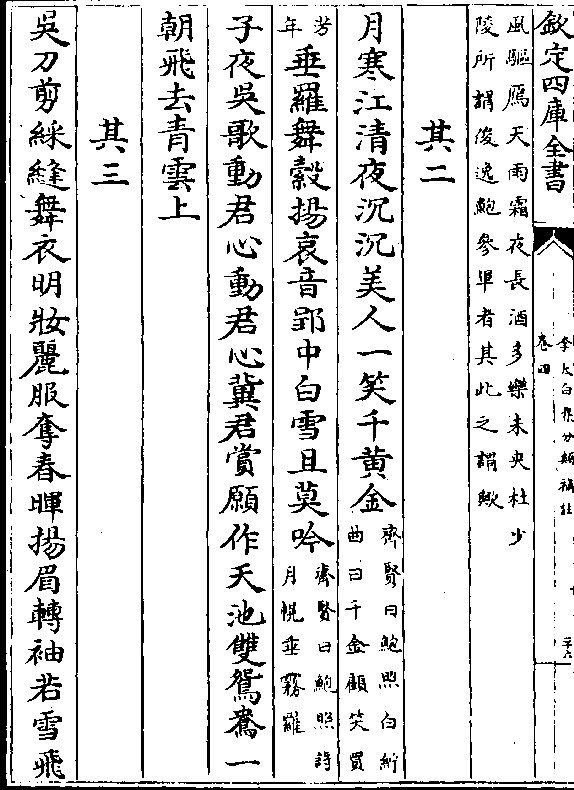 欽定四庫全書
李太白集分類補註
卷四
三六
風驅鴈天雨霜夜長酒多樂未央杜少
陵所謂俊逸鮑參軍者其此之謂歟
其二
月寒江清夜沉沉美人一笑千黄金齊賢曰鮑照白紵
曲曰千金顧笑買
芳年垂羅舞縠揚哀音郢中白雪且莫吟齊賢曰鮑照詩
月幌垂霧羅
子夜吳歌動君心動君心冀君賞願作天池雙鴛鴦一
朝飛去青雲上
其三
吳刀剪綵縫舞衣明妝麗服奪春暉揚眉轉袖若雪飛